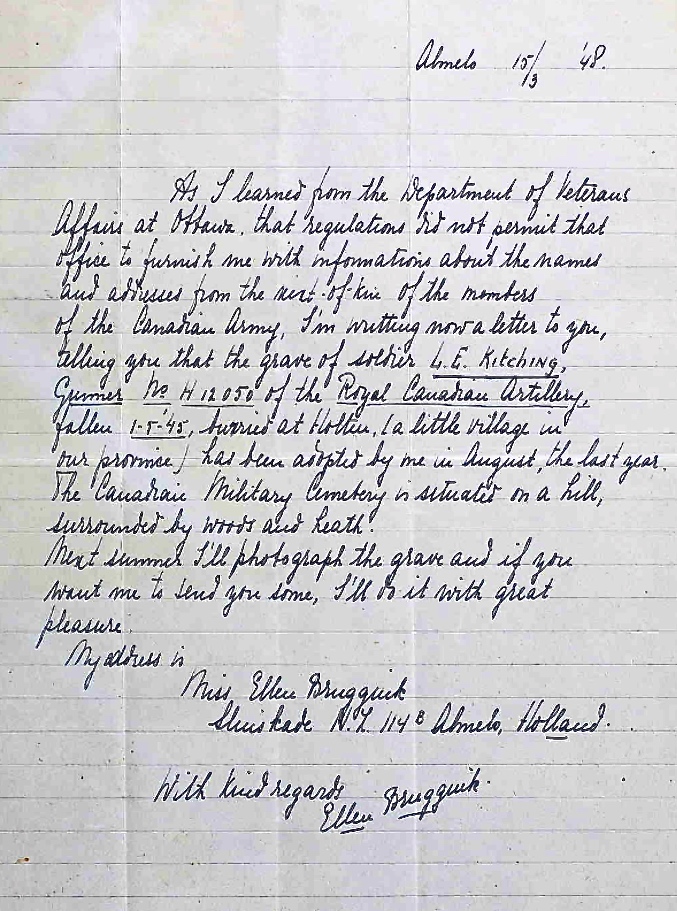 Almelo 15/3 '48.
As I learned from the Department of Veterans
Affairs at Ottawa, that regulations did not permit that
office to furnish me with informations about the names
and addresses from the next-of-kin of the members
of the Canadian Army, I'm writting now a letter to you,
telling you that the grave of soldier L.E. Kitching,
Gunner No H 12050 of the Royal Canadian Artillery,
fallen 1-5-'45, burried at Holten, (a little village in
our province) has been adopted by me in August, the last year.
The Canadian Military Cemetery is situated on a hill,
surrounded by woods and heath.
Next summer I'll photograph the grave and if you
want me to send you some, I'll do it with great
pleasure.
My address is
Miss Ellen Bruggink
Sluiskade N.Z. 114 B Almelo, Holland.
With kind regards
Ellen Bruggink.